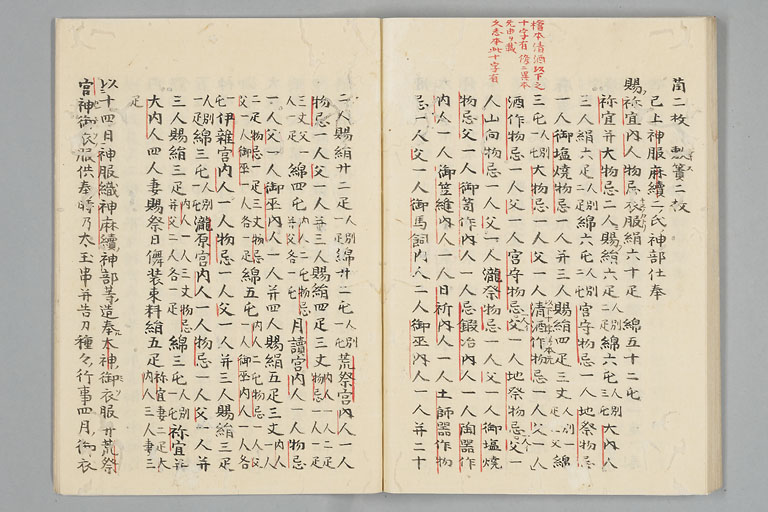 檜本清酒以下之
十字有 修ニ異本
元由リ載
又志本此十字有
薗二枚 瓢簀二枚
已上神服麻續二氏神部仕奉
賜祢宜内人物忌衣服絹六十疋 綿五十二屯
祢宜并大物忌二人賜絹六疋人別二疋綿六屯人別三屯大内人
三人絹六疋人別二疋綿六屯人別二屯宮守物忌一人地祭物忌
一人御塩焼物忌一人并三人賜絹四疋三丈人別一疋一丈綿
三屯人別一屯大物忌一人父一人清酒作物忌一人父一人
酒作物忌一人父一人宮守物忌父一人地祭物忌父一
人山向物忌一人父一人瀧祭物忌一人父一人御塩焼
物忌父一人御笥作内人一人忌鍛冶内人一人陶器作
内人一人御笠縫内人一人日祈内人一人土師器作物
忌一人父一人御馬飼内人二人御巫内人一人并二十
二人賜絹廿二疋人別一疋綿廿二屯人別一屯荒祭宮内人一人
物忌一人父一人并三人賜絹四疋三丈内人一人二疋物忌一人一疋三丈父一人一疋綿四屯内人二屯物忌并父各一屯月讀宮内人一人物忌
一人父一人御巫内人一人并四人賜絹五疋三丈内人一人二疋物忌一疋三丈父一人御巫内人各一疋綿五屯内人二屯物忌一人父一人御巫内人一人各一屯
伊雜宮内人一人物忌一人父一人并三人賜絹三疋人別一疋綿三屯人別一屯瀧原宮内人一人物忌一人父一人并
三人賜絹三疋内人一人一疋三丈物忌并父二人各一疋綿三屯人別一屯祢宜并
大内人四人妻賜祭日儛装束料絹五疋祢宜妻二疋大内人三人妻三疋
以十四日神服織神麻續神部等造奉太神御衣服并荒祭
宮神御衣服供奉時乃太玉串并告刀種々行事四月御衣